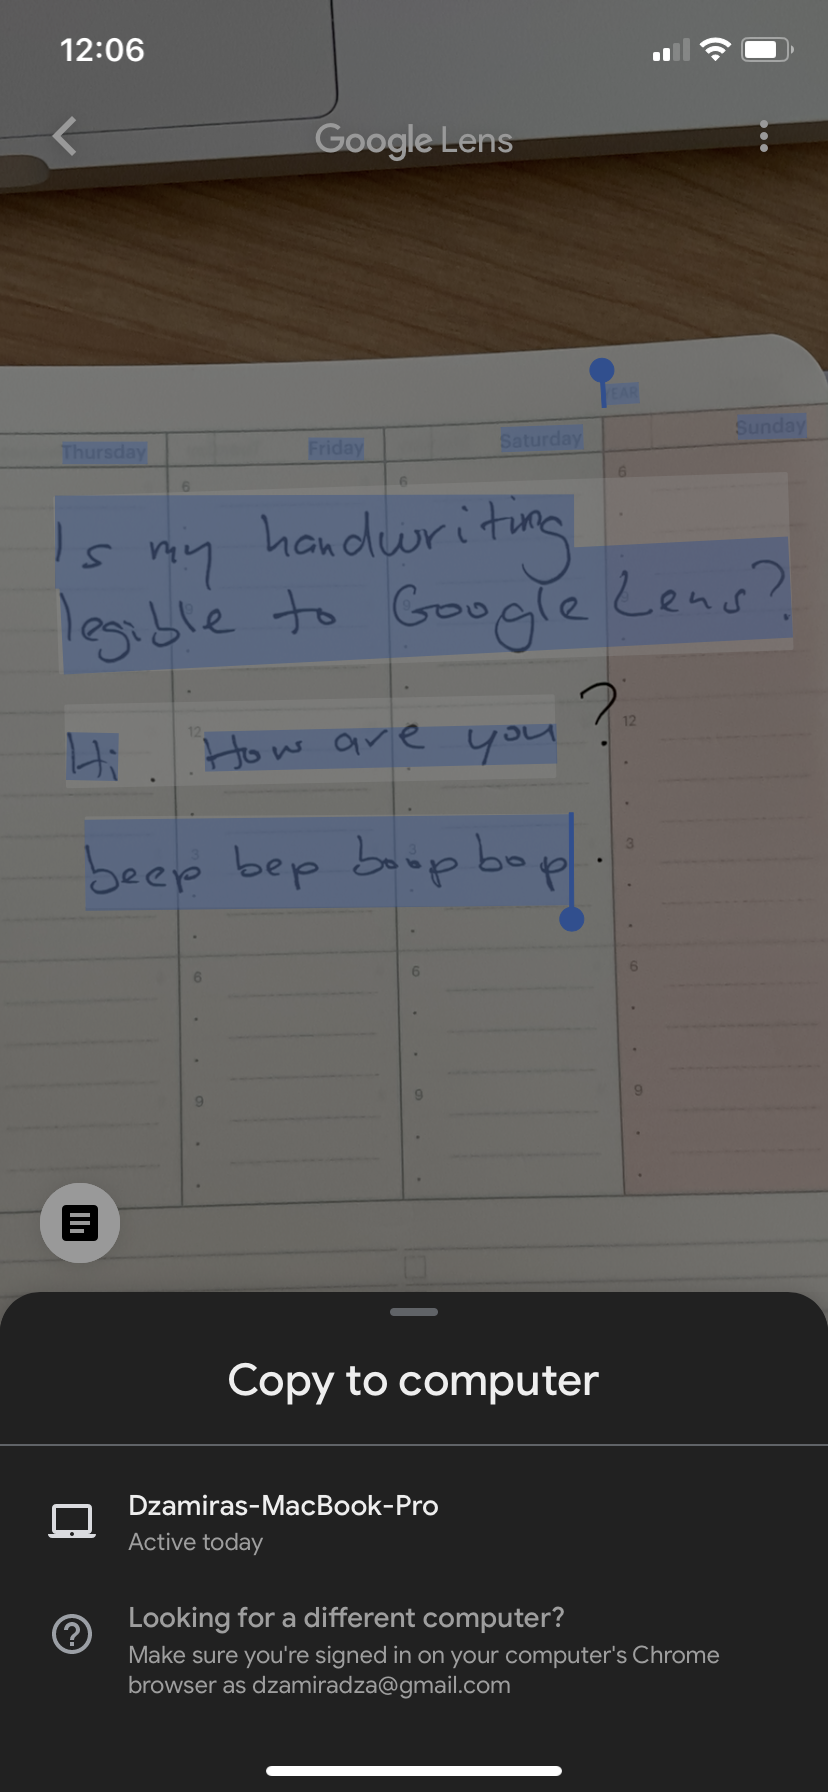 12:06
Google Lens
YEAR
Thursday Friday Saturday Sunday
6 6 6
Is my handwriting
legible to Google Lens?
9 9 9
12 12
Hi. How are you?
3 3 3
beep bep boop bop.
6 6 6
9 9 9
Copy to computer
Dzamiras-MacBook-Pro
Active today
Looking for a different computer?
Make sure you're signed in on your computer's Chrome
browser as dzamiradza@gmail.com